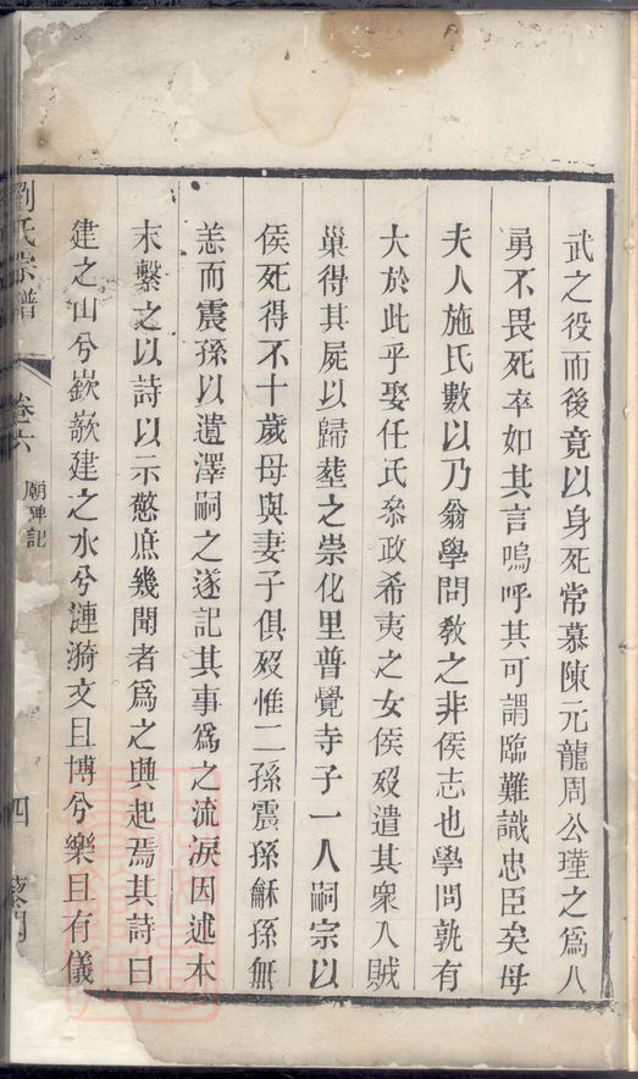 武之役而後竟以身死常慕陳元龍周公瑾之爲人
勇不畏死卒如其言嗚呼其可謂臨難識忠臣矣母
夫人施氏數以乃翁學問敎之非侯志也學問孰有
大於此乎娶任氏叅政希夷之女侯歿遣其衆入賊
巢得其屍以歸塟之崇化里普覺寺子一人嗣宗以
侯死得不十歲母與妻子俱歿惟二孫震孫龢孫無
恙而震孫以遺澤嗣之遂記其事爲之流淚因述本
末繫之以詩以示慭庶幾聞者爲之興起焉其詩曰
建之山兮嶔嶔建之水兮漣漪文且博兮樂且有儀
劉氏宗譜
卷六
廟碑記
四